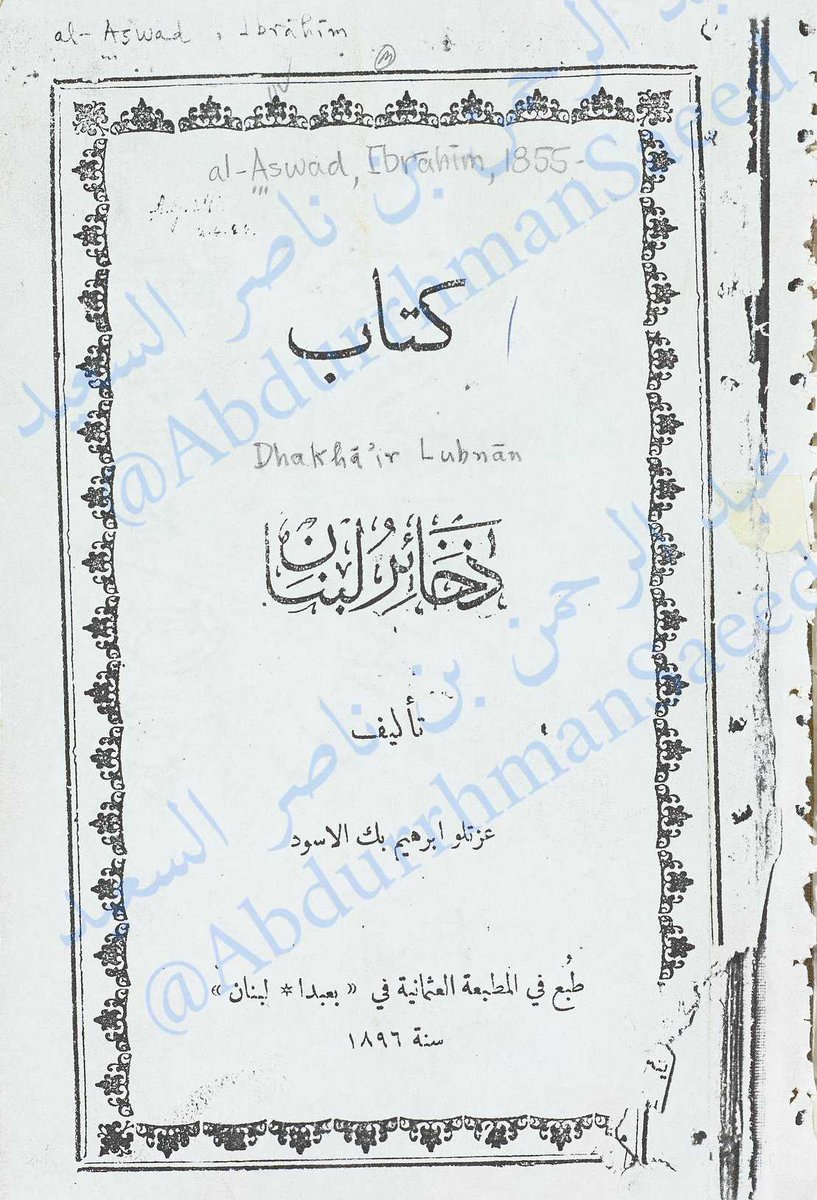 al-Aswad, Ibrāhīm
al-Aswad, Ibrāhīm, 1855-
كتاب
Dhakhā'ir Lubnān
ذخائر لبنان
تأليف
عزتلو ابرهيم بك الاسود
طُبع في المطبعة العثمانية في « بعبدا * لبنان »
سنة ١٨٩٦
عبد الرحمن بن ناصر السعيد
@AbdurrhmanSaeed
عبد الرحمن بن ناصر السعيد
@AbdurrhmanSaeed